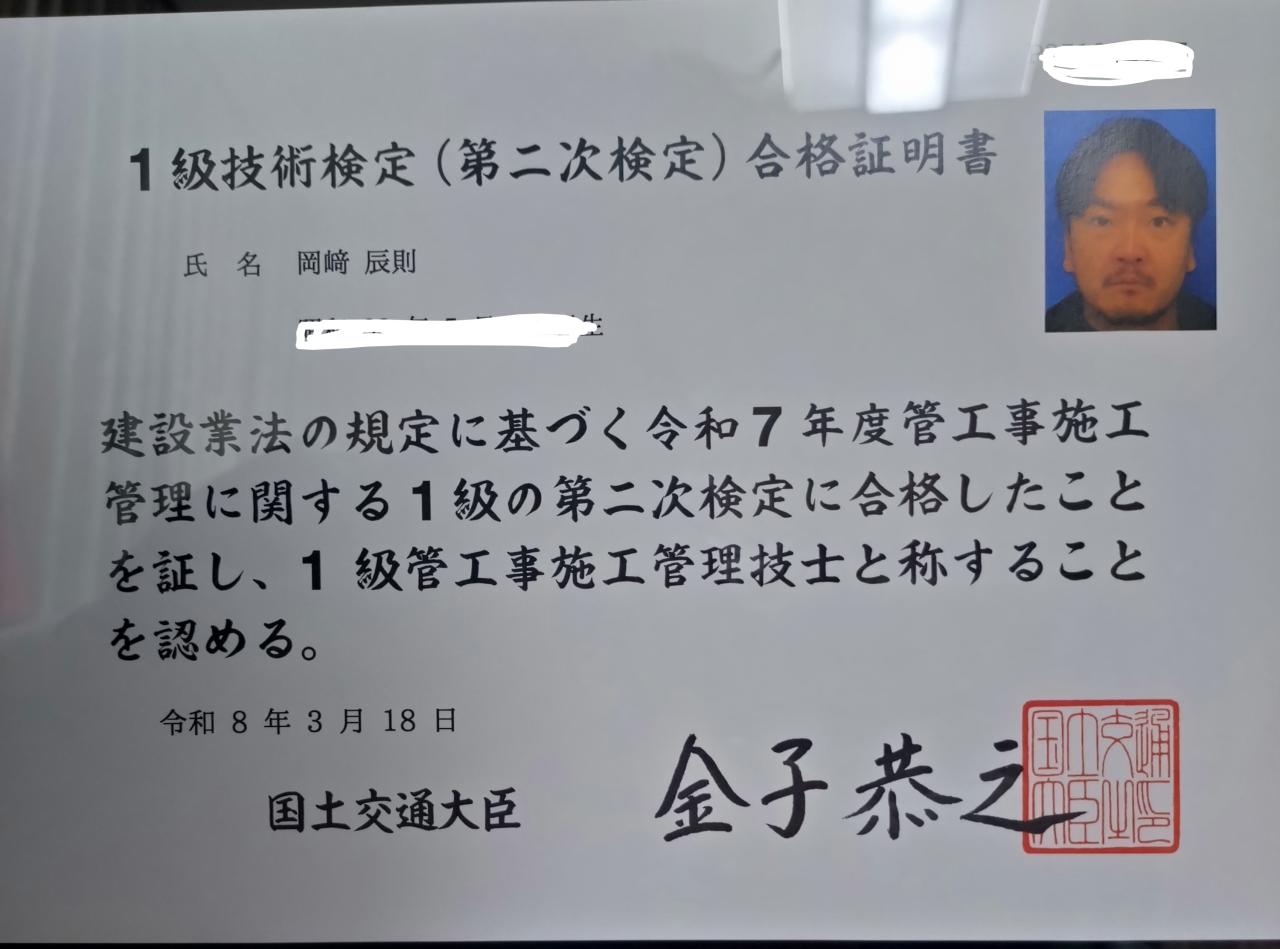 1級技術検定(第二次検定)合格証明書
氏 名 岡﨑 辰則
生
建設業法の規定に基づく令和7年度管工事施工
管理に関する1級の第二次検定に合格したこと
を証し、1 級管工事施工管理技士と称すること
を認める。
令和 8 年 3 月 18 日
国土交通大臣 金子恭之